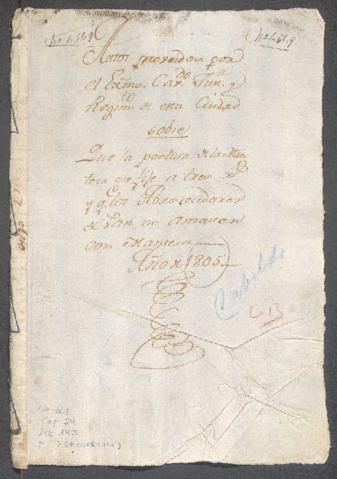 Autos proveidos por
el Exmo. Cavdo. Jusa. y
Regimto. de esta Ciudad
sobre
Que la postura de la Man
teca se fije a tres rs.
y q. los Abastecedores
de Pan no amasen
con Manteca
Año de 1805.
Cabildo
CB